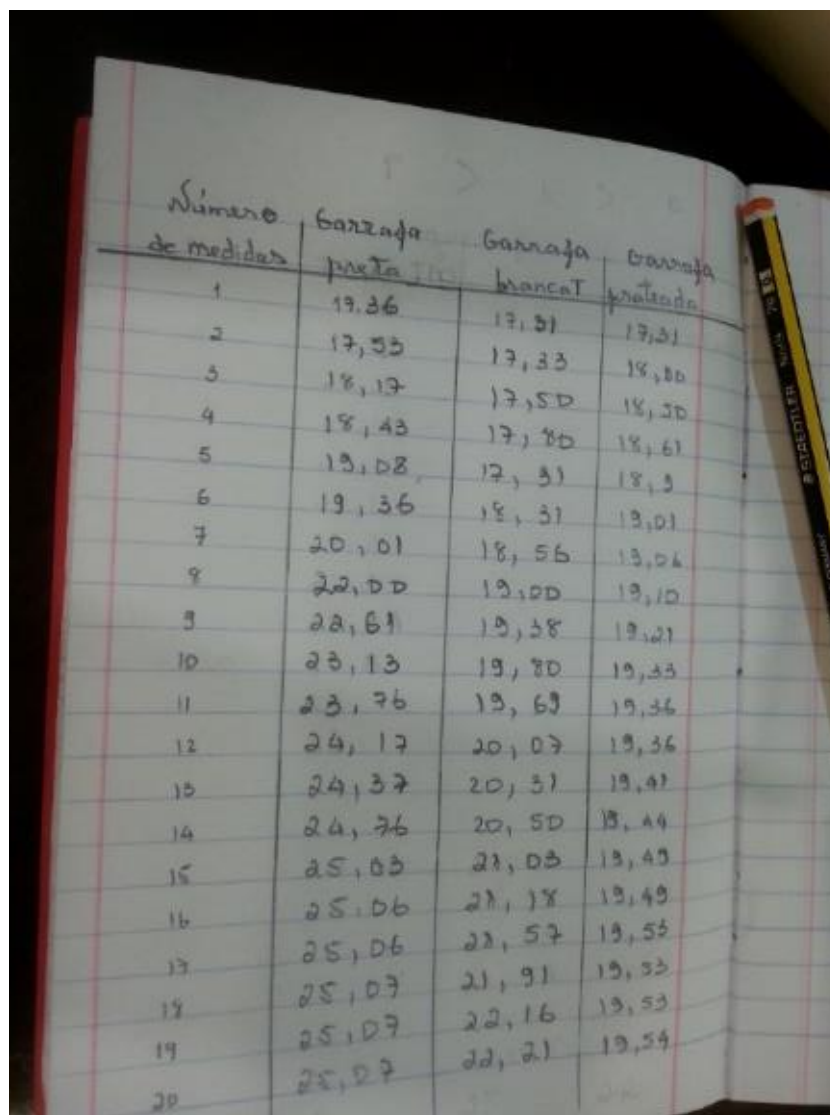 Número Garrafa Garrafa Garrafa
de medidas preta brancaT prateada
1 17.36 17,31 17,31
2 17,53 17,33 18,00
3 18,17 17,50 18,50
4 18,43 17,80 18,61
5 19,08 17,91 18,9
6 19,36 18,31 19,01
7 20,01 18,56 19,06
8 22,00 19,00 19,10
9 22,61 19,38 19,21
10 23,13 19,80 19,33
11 23,76 19,69 19,36
12 24,17 20,07 19,36
13 24,37 20,31 19,41
14 24,76 20,50 19,44
15 25,03 21,03 19,49
16 25.06 21,18 19,49
17 25,06 21,57 19,53
18 25,07 21,91 19,53
19 25,07 22,16 19,53
20 25,07 22,21 19,54
STAEDTLER